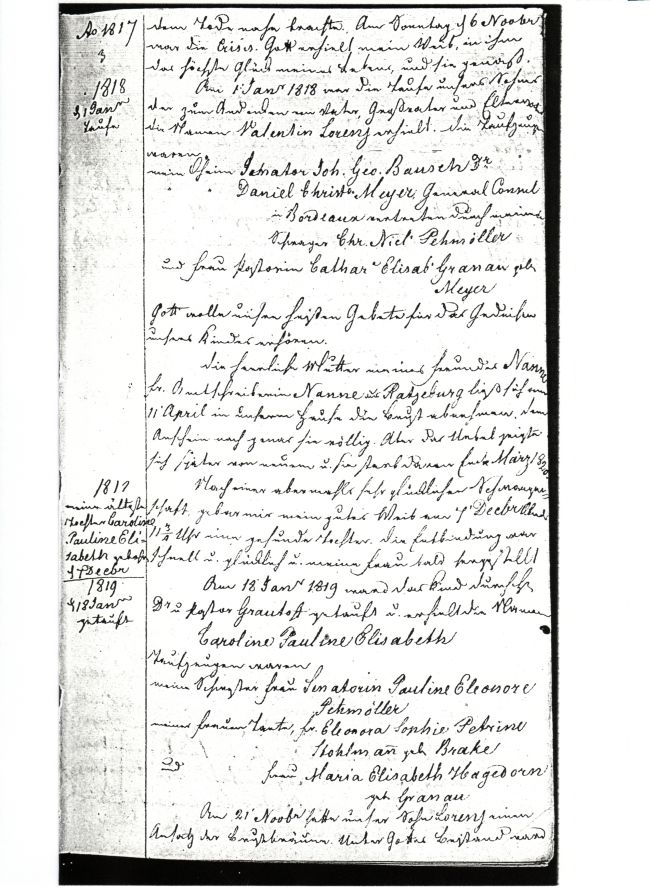 Ao 1817
3
dem Tode nahe brachte. Am Sonntag d 16 Novbr
war die Crisis. Gott erhielt mein Weib, in ihm
das höchste Glück meines Lebens, und sie genaß.
1818
d 1 Janr
Taufe
Am 1 Janr 1818 war die Taufe unsers Sohns
der zum Andenken von Vater, Großvater und
die Namen Valentin Lorenz erhielt. Die Taufzeugen
waren
mein Oheim Senator Joh. Geo. Bausch Dr
" " Daniel Christn Meyer, General Consul
in Bordeaux vertreten durch meinen
Schwager Chr. Nicl Pehmöller
und Frau Pastorin Cathar Elisab Granau geb
Meyer
Gott wolle unsre heißen Gebete für das Gedeihen
unsers Kindes erhören.
Die herrliche Mutter meines Freundes Nanne
Fr. Amtschreiberin Nanne aus Ratzeburg ließ sich am
11 April in unserm Hause die Brust abnehmen. Dem
Anschein nach genas sie völlig. Aber das Uebel zeigte
sich später von neuem u. sie starb daran Ende März 1820
1818
meine älteste
Tochter Caroline
Pauline Eli-
sabeth geboren
d 7 Decbr
Nach einer abermahls sehr glücklichen Schwanger-
schaft, gebar mir mein gutes Weib am 7 Decbr Abends
11 3/4 Uhr eine gesunde Tochter. Die Entbindung war
schnell u. glücklich u. meine Frau bald hergestellt
1819
d 18 Janr
getauft
Am 18 Janr 1819 ward das Kind durch H
Dr u Pastor Grautoff getauft u. erhielt die Namen
Caroline Pauline Elisabeth
Taufzeugen waren
meine Schwester Frau Senatorin Pauline Eleonore
Pehmöller
meiner Frauen Tante, Fr. Eleonora Sophie Petrine
Stohlmañ geb Brake
und Frau Maria Elisabeth Hagedorn
geb Granau
Am 21 Novbr hatte unser Sohn Lorenz einen
Ansatz der Brustbräune. Unter Gottes Beistand ward